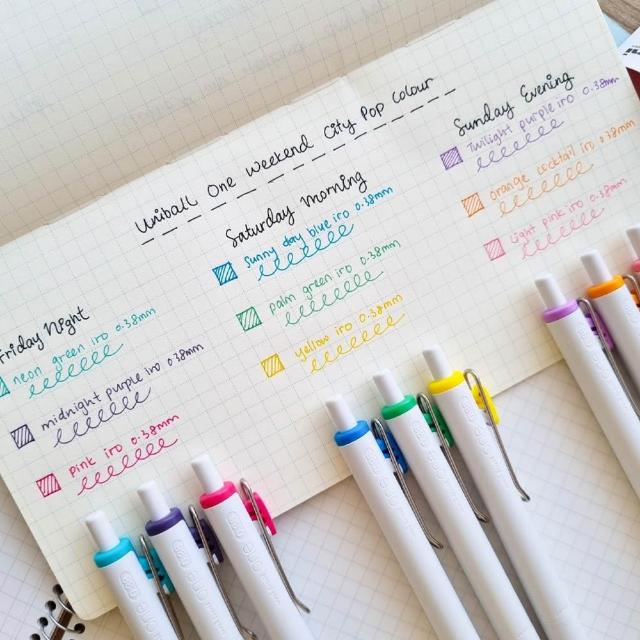 Uniball One Weekend City Pop Colour
Friday Night
neon green iro 0.38mm
midnight purple iro 0.38mm
pink iro 0.38mm
Saturday Morning
Sunny day blue iro 0.38mm
palm green iro 0.38mm
yellow iro 0.38mm
Sunday Evening
Twilight purple iro 0.38mm
orange cocktail iro 0.38mm
Light pink iro 0.38mm